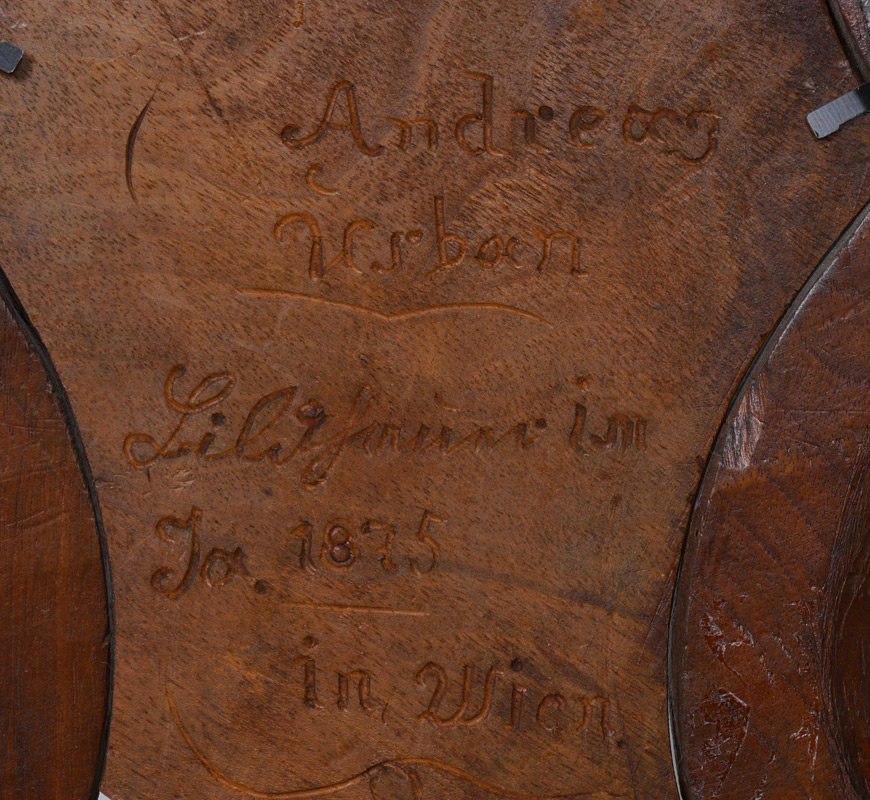 Andreas
Urban
Bildhauer im
Ja. 1875
in, Wien